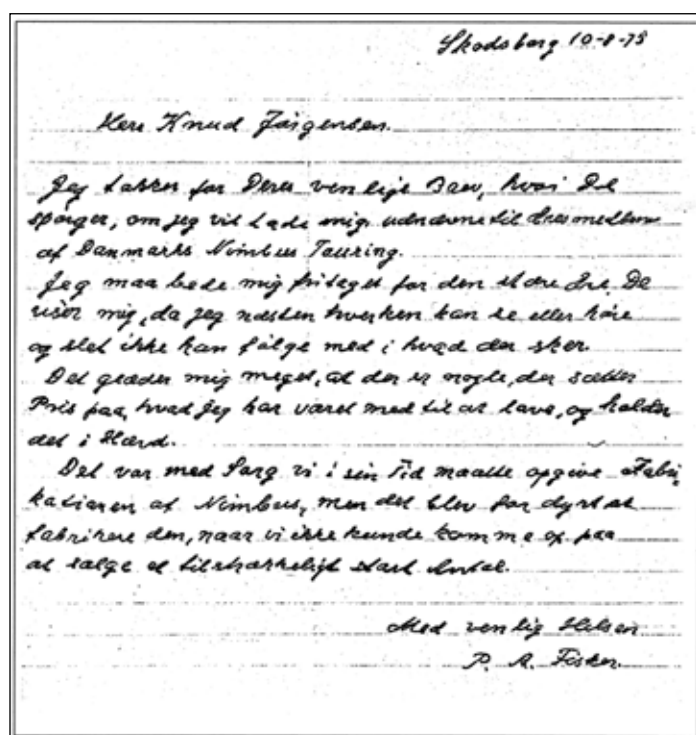 Skodsborg 10-8-75
Herr Knud Jörgensen.
Jeg takker for Deres venlige Brev, hvori De
spörger, om jeg vil lade mig udnævne til Æresmedlem
af Danmarks Nimbus Touring.
Jeg maa bede mig fritaget for den store Ære, De
viser mig, da jeg næsten hverken kan se eller höre
og slet ikke kan fölge med i hvad der sker.
Det glæder mig meget, at der er nogle, der sætter
Pris paa, hvad jeg har været med til at lave, og holder
det i Hævd.
Det var med Sorg vi i sin Tid maatte opgive Fabri
kationen af Nimbus, men det blev for dyrt at
fabrikere den, naar vi ikke kunde komme op paa
at sælge et tilstrækkeligt stort Antal.
Med venlig Hilsen
P. A. Fisker.